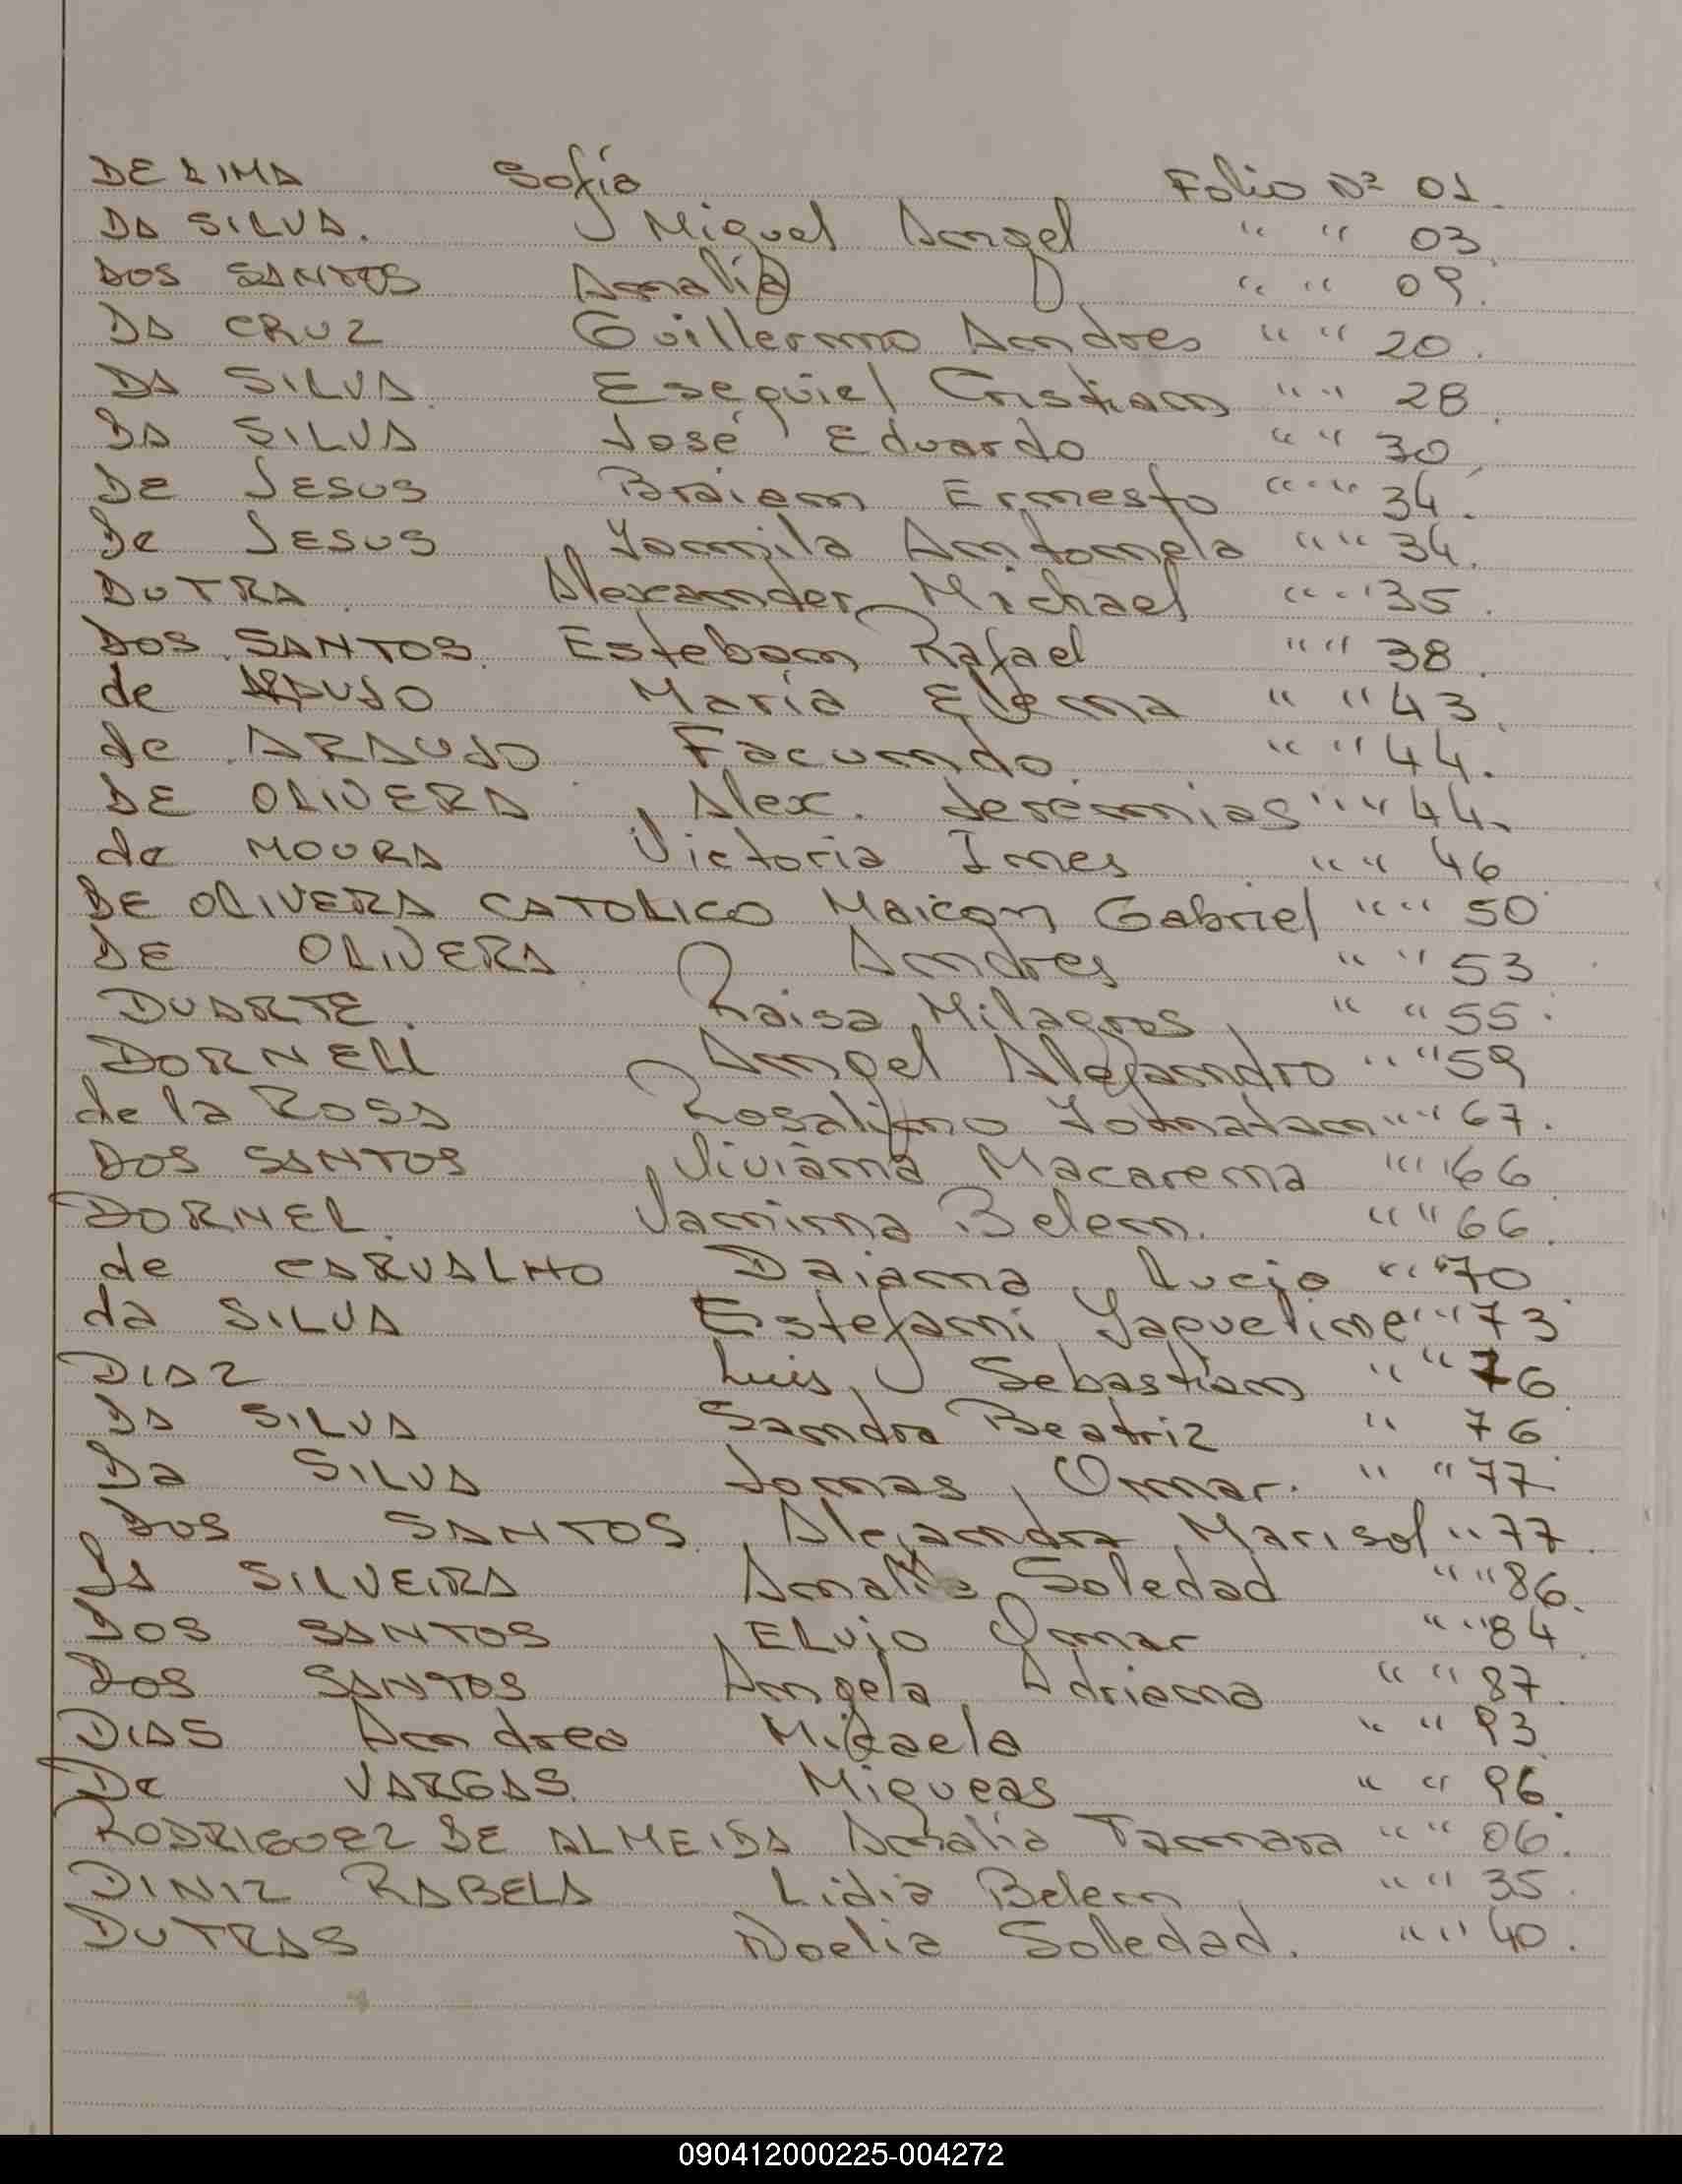 DE LIMA Sofía Folio Nº 01.
DA SILVA. Miguel Angel " " 03.
DOS SANTOS Analia " " 09.
DA CRUZ Guillermo Andres " " 20.
DA SILVA. Esequiel Cristian " " 28.
DA SILVA José Eduardo " " 30.
De JESUS Braian Ernesto " " 34.
De JESUS Yamila Antonela " " 34.
DUTRA. Alexander Michael " " 35.
DOS SANTOS. Esteban Rafael " " 38.
de ARAUJO María Elena " " 43.
de ARAUJO Facundo. " " 44.
DE OLIVERA Alex. Jeremias " " 44.
de MOURA Victoria Ines " " 46
DE OLIVERA CATOLICO Maicon Gabriel " " 50
DE OLIVERA. Andres " " 53
DUARTE. Raisa Milagros " " 55.
DORNELL Angel Alejandro " " 59
de la ROSA Rosalino Yonatan " " 67.
DOS SANTOS Viviana Macarena " " 66
DORNEL. Jamima Belen. " " 66.
de CARVALHO Daiana Lucia " " 70
da SILVA Estefani Yaqueline " " 73
DIAZ Luis Sebastian " " 76
DA SILVA Sandra Beatriz " 76
Da SILVA tomas Omar. " " 77
DOS SANTOS. Alejandra Marisol " 77.
DA SILVEIRA Analia Soledad " " 86.
DOS SANTOS ELvio Omar " " 84
DOS SANTOS Angela Adriana " " 87.
DIAS Andrea Micaela " " 93
De VARGAS. Miqueas " " 96.
RODRIGUEZ DE ALMEIDA Analía Tamara " " 06.
DINIZ RABELA Lidia Belen " " 35.
DUTRAS Noelia Soledad. " " 40.
090412000225-004272